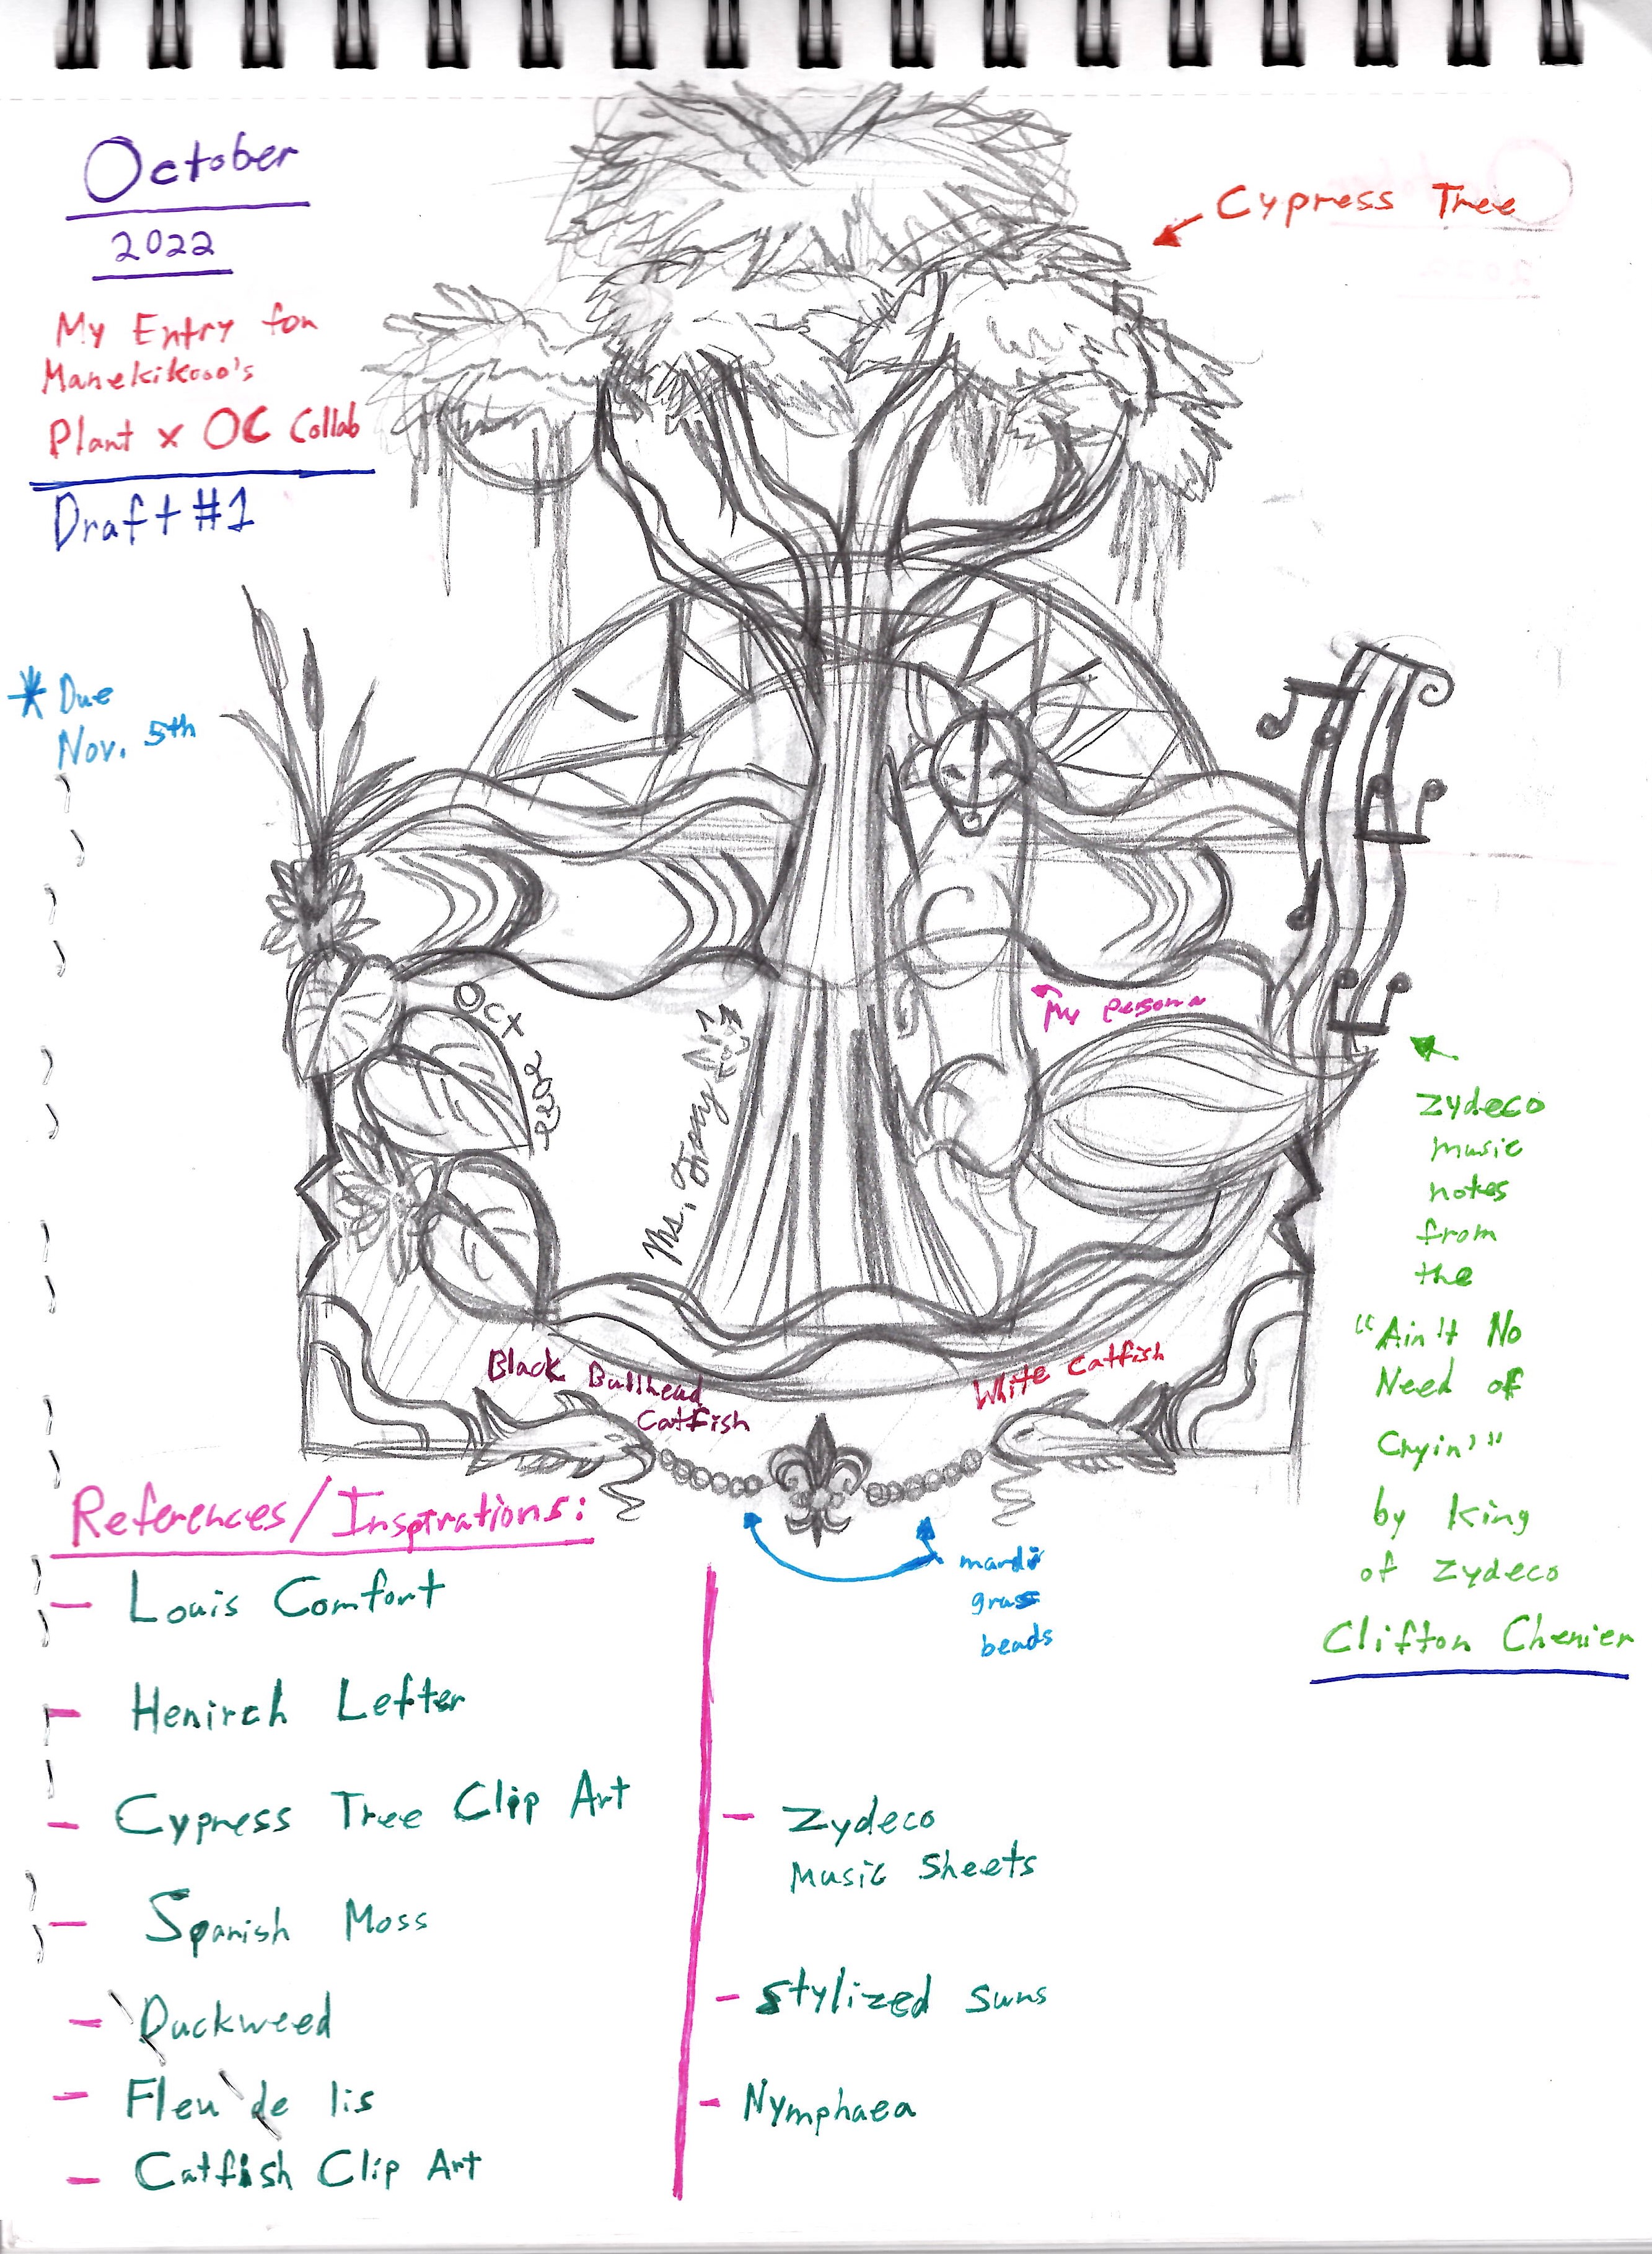 October
2022
My Entry for
Manekikooo's
Plant x OC Collab
Draft #1
Cypress Tree
* Due
Nov. 5th
My persona
Oct
2022
Ms.
Zydeco
music
notes
from
the
"Ain't No
Need of
Cryin'"
by King
of Zydeco
Clifton Chenier
Black Bullhead
Catfish
White Catfish
mardi
grass
beads
References/Inspirations:
- Louis Comfort
- Henirch Lefter
- Cypress Tree Clip Art
- Spanish Moss
- Duckweed
- Fleu de lis
- Catfish Clip Art
- Zydeco
Music Sheets
- Stylized suns
- Nymphaea